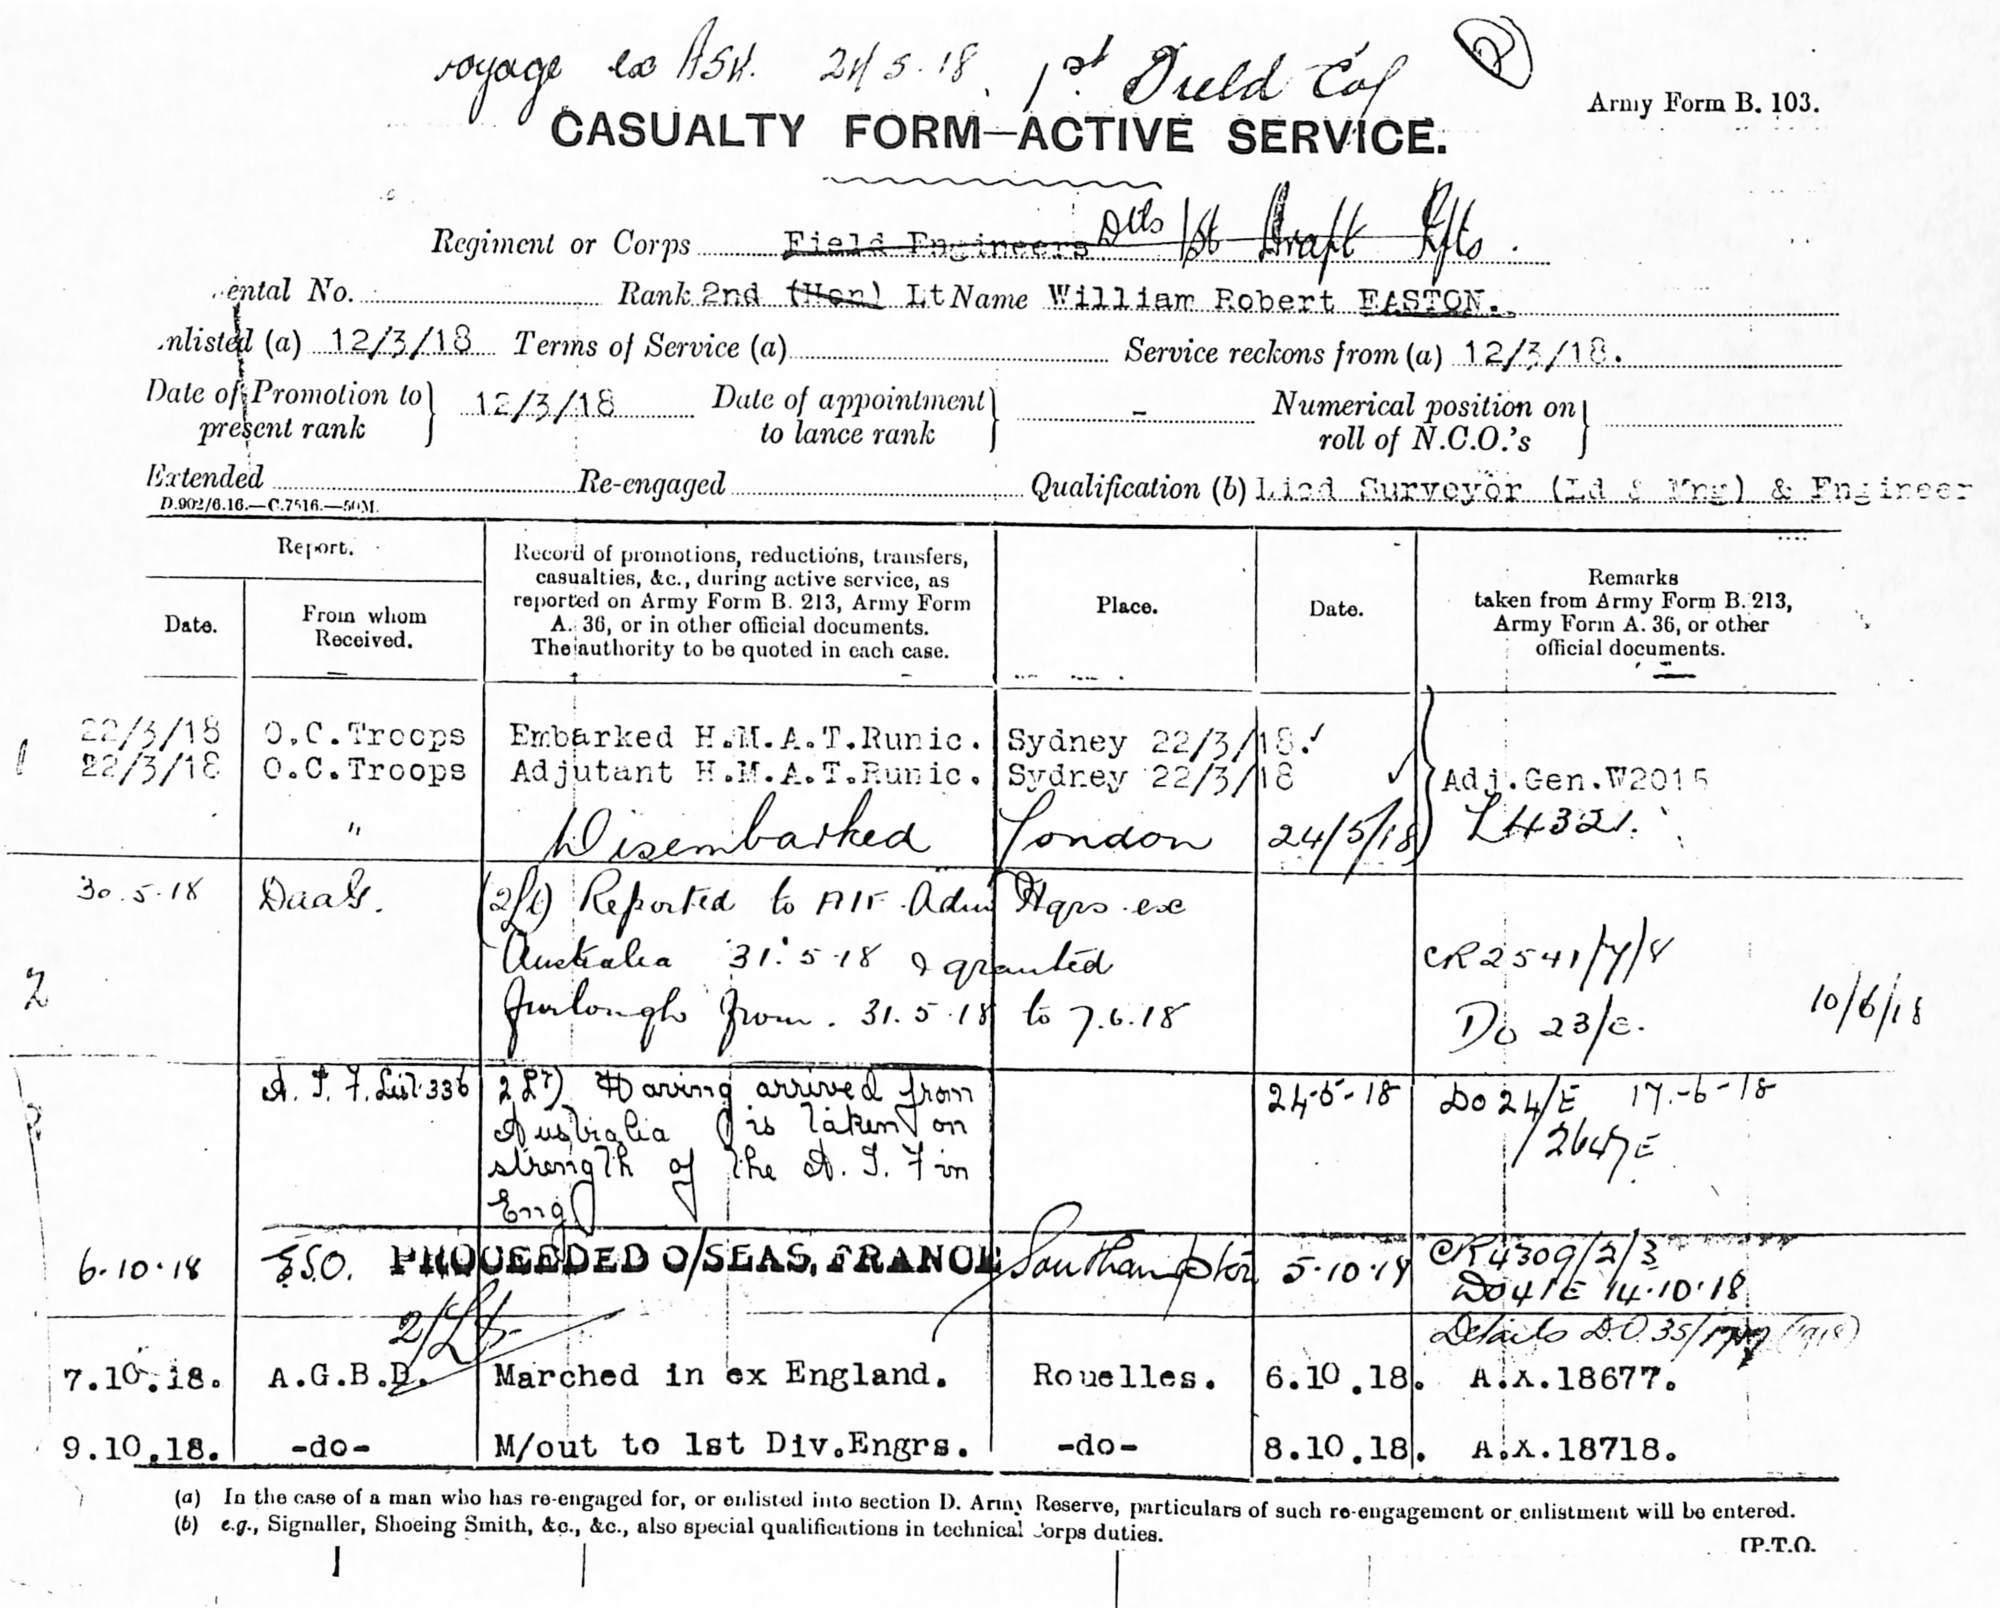 voyage ex Ask. 24 5.18. 1st Field Coy
Army Form B. 103.
CASUALTY FORM—ACTIVE SERVICE.
Regiment or Corps Field Engineers Dtls 1st Draft Rfts.
ental No. Rank 2nd (Hon) Lt Name William Robert EASTON.
nlisted (a) 12/3/18 Terms of Service (a) Service reckons from (a) 12/3/18.
Date of Promotion to present rank } 12/3/18 Date of appointment to lance rank } - Numerical position on roll of N.C.O.'s }
Extended Re-engaged Qualification (b) Licd Surveyor (Ld & Mng) & Engineer
D.902/6.16.—C.7516.—50M.
Report.
Date.
From whom Received.
Record of promotions, reductions, transfers,
casualties, &c., during active service, as
reported on Army Form B. 213, Army Form
A. 36, or in other official documents.
The authority to be quoted in each case.
Place.
Date.
Remarks
taken from Army Form B. 213,
Army Form A. 36, or other
official documents.
1 22/3/18 O.C.Troops Embarked H.M.A.T.Runic. Sydney 22/3/18.
22/3/18 O.C.Troops Adjutant H.M.A.T.Runic. Sydney 22/3/18 Adj.Gen.W2015
" Disembarked London 24/5/18 L4321.
30.5.18 DaaG. (2/Lt) Reported to AIF Adm Hqrs. ex
Australia 31.5.18 & granted CR2541/7/8
2 furlough from. 31.5.18 to 7.6.18 Do 23/E. 10/6/18
A. I. F. List 336 2Lt) Having arrived from 24-5-18 Do 24/E 17-6-18
Australia is taken on /2647E
strength of the A. I. F in
Eng
6.10.18 PROCEEDED O/SEAS, FRANCE Southampton 5.10.18 CR4309/2/3
Do 41E 14.10.18
2/Lt Details D.O.35/ (1918)
7.10.18. A.G.B.D. Marched in ex England. Rouelles. 6.10.18. A.X.18677.
9.10.18. -do- M/out to 1st Div.Engrs. -do- 8.10.18. A.X.18718.
(a) In the case of a man who has re-engaged for, or enlisted into section D. Army Reserve, particulars of such re-engagement or enlistment will be entered.
(b) e.g., Signaller, Shoeing Smith, &c., &c., also special qualifications in technical Corps duties.
[P.T.O.